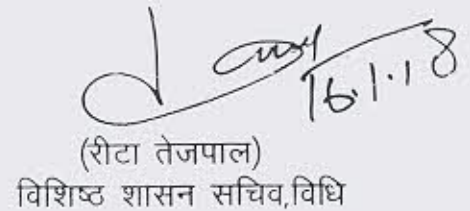 16.1.18
(रीटा तेजपाल)
विशिष्ट शासन सचिव,विधि